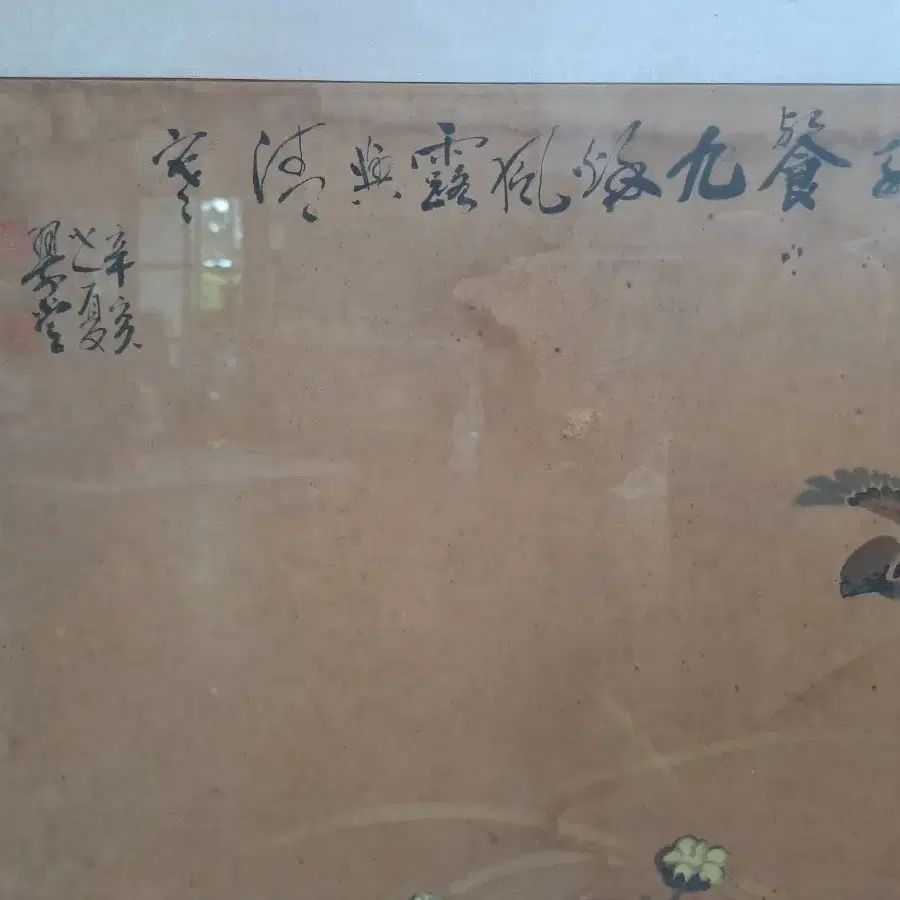 餐九秋風露與清寒
辛亥
之夏